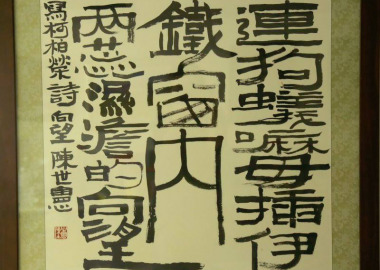 連狗蟻嘛毋插伊
鐵窗內
兩蕊濕澹的向望
寫柯柏榮詩 向望 陳世憲